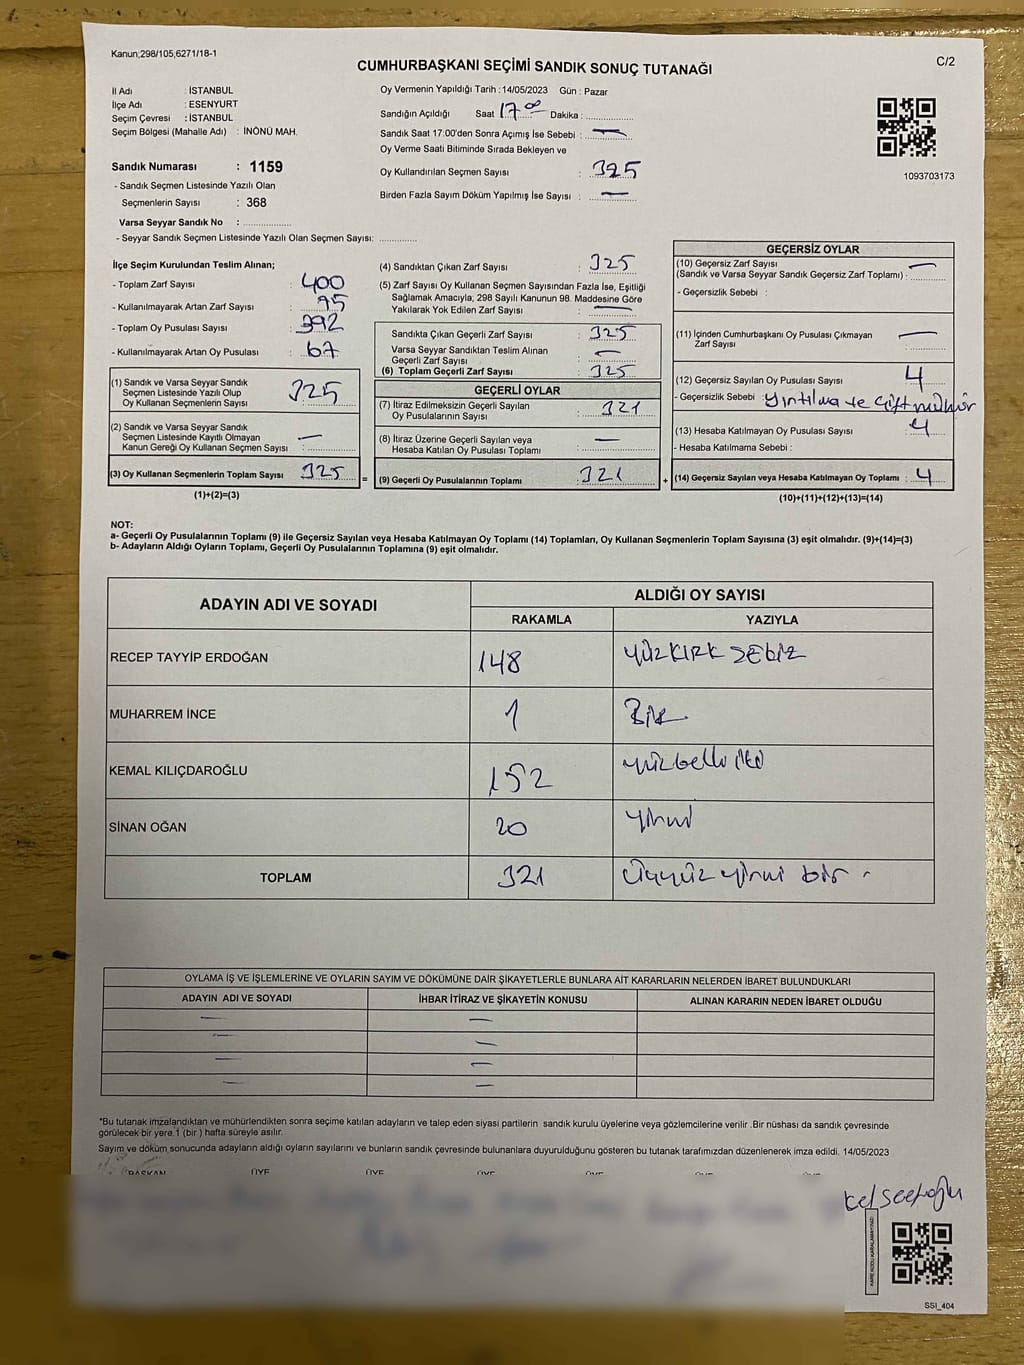 Kanun;298/105,6271/18-1
CUMHURBAŞKANI SEÇİMİ SANDIK SONUÇ TUTANAĞI
C/2
İl Adı : İSTANBUL
İlçe Adı : ESENYURT
Seçim Çevresi : İSTANBUL
Seçim Bölgesi (Mahalle Adı) : İNÖNÜ MAH.
Sandık Numarası : 1159
- Sandık Seçmen Listesinde Yazılı Olan
Seçmenlerin Sayısı : 368
Varsa Seyyar Sandık No : ................
- Seyyar Sandık Seçmen Listesinde Yazılı Olan Seçmen Sayısı: ............
Oy Vermenin Yapıldığı Tarih : 14/05/2023 Gün : Pazar
Sandığın Açıldığı Saat 17.00 Dakika : ...............
Sandık Saat 17:00'den Sonra Açımış İse Sebebi : —
Oy Verme Saati Bitiminde Sırada Bekleyen ve
Oy Kullandırılan Seçmen Sayısı : 325
Birden Fazla Sayım Döküm Yapılmış İse Sayısı : —
1093703173
İlçe Seçim Kurulundan Teslim Alınan;
- Toplam Zarf Sayısı : 400
- Kullanılmayarak Artan Zarf Sayısı : 75
- Toplam Oy Pusulası Sayısı : 392
- Kullanılmayarak Artan Oy Pusulası : 67
(1) Sandık ve Varsa Seyyar Sandık
Seçmen Listesinde Yazılı Olup
Oy Kullanan Seçmenlerin Sayısı : 325
(2) Sandık ve Varsa Seyyar Sandık
Seçmen Listesinde Kayıtlı Olmayan
Kanun Gereği Oy Kullanan Seçmen Sayısı : —
(3) Oy Kullanan Seçmenlerin Toplam Sayısı : 325
(1)+(2)=(3)
(4) Sandıktan Çıkan Zarf Sayısı : 325
(5) Zarf Sayısı Oy Kullanan Seçmen Sayısından Fazla İse, Eşitliği
Sağlamak Amacıyla, 298 Sayılı Kanunun 98. Maddesine Göre
Yakılarak Yok Edilen Zarf Sayısı : —
Sandıkta Çıkan Geçerli Zarf Sayısı : 325
Varsa Seyyar Sandıktan Teslim Alınan
Geçerli Zarf Sayısı : —
(6) Toplam Geçerli Zarf Sayısı : 325
GEÇERLİ OYLAR
(7) İtiraz Edilmeksizin Geçerli Sayılan
Oy Pusulalarının Sayısı : 321
(8) İtiraz Üzerine Geçerli Sayılan veya
Hesaba Katılan Oy Pusulası Toplamı : —
=
(9) Geçerli Oy Pusulalarının Toplamı : 321
+
GEÇERSİZ OYLAR
(10) Geçersiz Zarf Sayısı
(Sandık ve Varsa Seyyar Sandık Geçersiz Zarf Toplamı) : —
- Geçersizlik Sebebi :
(11) İçinden Cumhurbaşkanı Oy Pusulası Çıkmayan
Zarf Sayısı : —
(12) Geçersiz Sayılan Oy Pusulası Sayısı : 4
- Geçersizlik Sebebi : yırtılma ve çift mühür
(13) Hesaba Katılmayan Oy Pusulası Sayısı : 4
- Hesaba Katılmama Sebebi :
(14) Geçersiz Sayılan veya Hesaba Katılmayan Oy Toplamı : 4
(10)+(11)+(12)+(13)=(14)
NOT:
a- Geçerli Oy Pusulalarının Toplamı (9) ile Geçersiz Sayılan veya Hesaba Katılmayan Oy Toplamı (14) Toplamları, Oy Kullanan Seçmenlerin Toplam Sayısına (3) eşit olmalıdır. (9)+(14)=(3)
b- Adayların Aldığı Oyların Toplamı, Geçerli Oy Pusulalarının Toplamına (9) eşit olmalıdır.
ADAYIN ADI VE SOYADI
ALDIĞI OY SAYISI
RAKAMLA YAZIYLA
RECEP TAYYİP ERDOĞAN 148 YÜZKIRK SEKİZ
MUHARREM İNCE 1 BİR
KEMAL KILIÇDAROĞLU 152 yüzbelli iki
SİNAN OĞAN 20 yirmi
TOPLAM 321 üçyüz yirmi bir
OYLAMA İŞ VE İŞLEMLERİNE VE OYLARIN SAYIM VE DÖKÜMÜNE DAİR ŞİKAYETLERLE BUNLARA AİT KARARLARIN NELERDEN İBARET BULUNDUKLARI
ADAYIN ADI VE SOYADI İHBAR İTİRAZ VE ŞİKAYETİN KONUSU ALINAN KARARIN NEDEN İBARET OLDUĞU
— —
— —
— —
— —
*Bu tutanak imzalandıktan ve mühürlendikten sonra seçime katılan adayların ve talep eden siyasi partilerin sandık kurulu üyelerine veya gözlemcilerine verilir .Bir nüshası da sandık çevresinde
görülecek bir yere 1 (bir ) hafta süreyle asılır.
Sayım ve döküm sonucunda adayların aldığı oyların sayılarını ve bunların sandık çevresinde bulunanlara duyurulduğunu gösteren bu tutanak tarafımızdan düzenlenerek imza edildi. 14/05/2023
BAŞKAN ÜYE ÜYE ÜYE ÜYE ÜYE ÜYE
KARE KODU KARALAMAYINIZ!
SSI_404